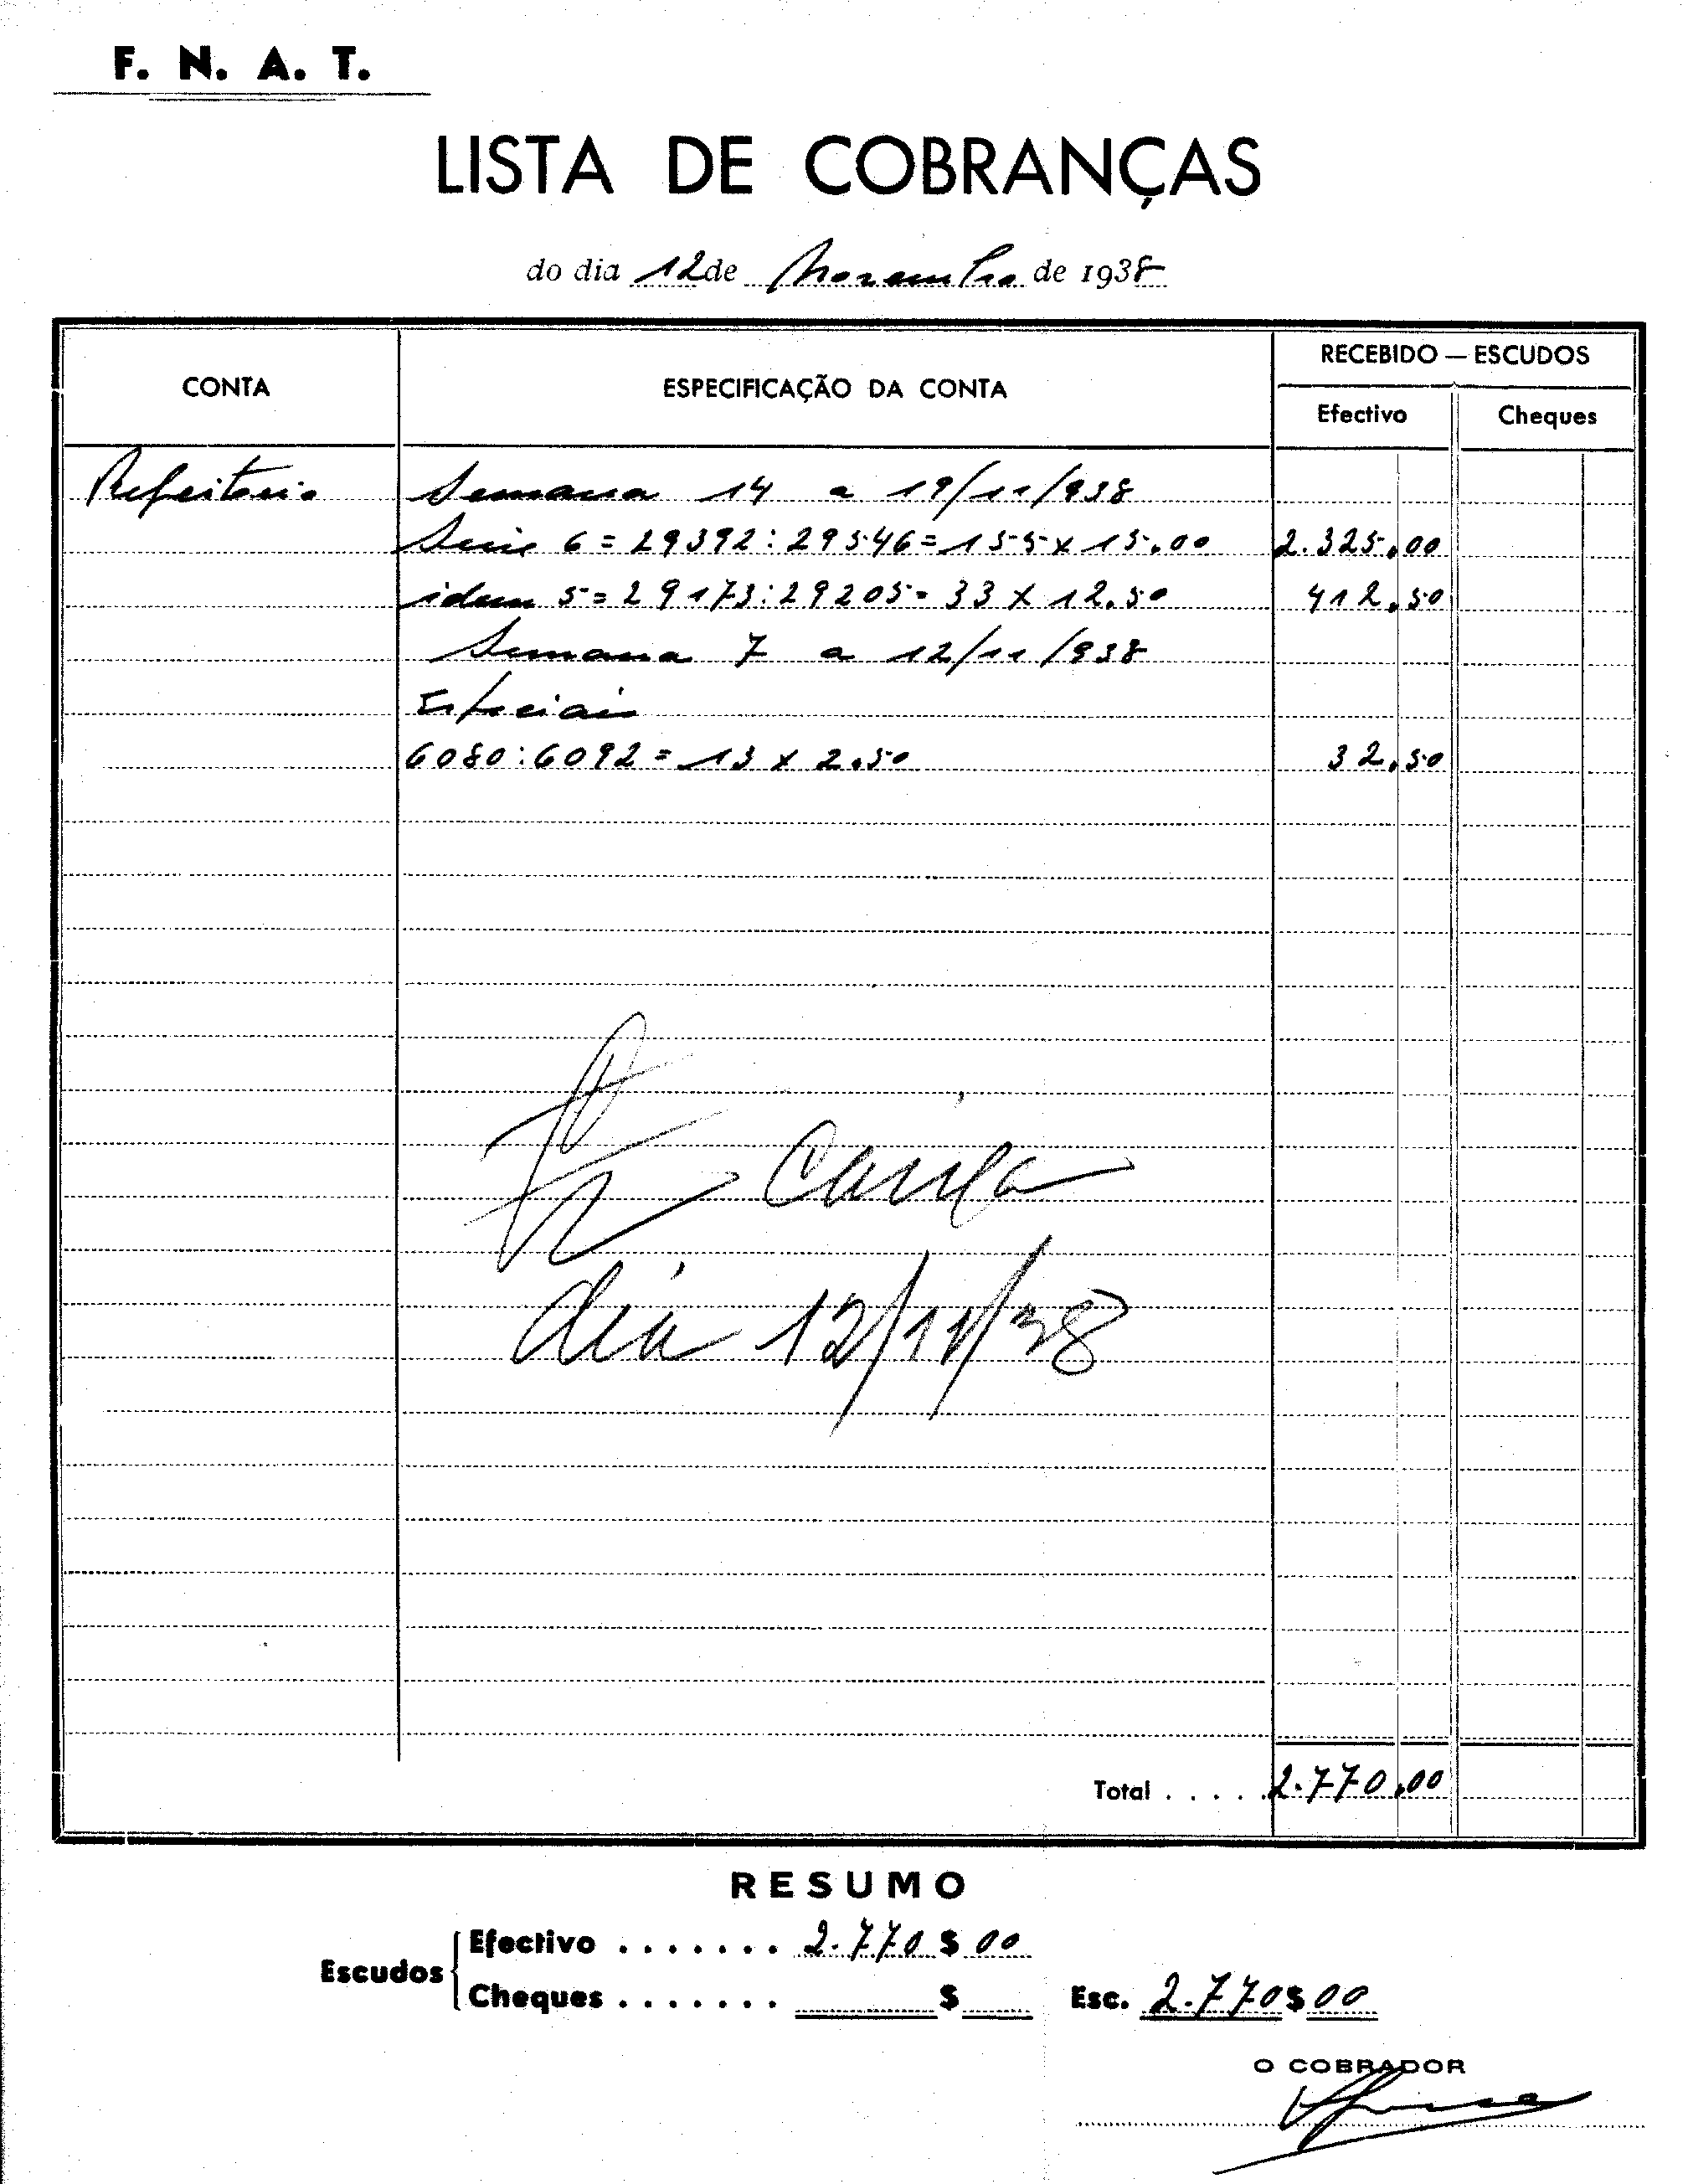 F. N. A. T.
LISTA DE COBRANÇAS
do dia 12 de Novembro de 1938
CONTA
ESPECIFICAÇÃO DA CONTA
RECEBIDO — ESCUDOS
Efectivo
Cheques
Refeitorio Semana 14 a 19/11/938
Serie 6 = 29392 : 29546 = 155 x 15.00 2.325.00
idem 5 = 29173 : 29205 = 33 x 12.50 412.50
Semana 7 a 12/11/938
Especiais
6080 : 6092 = 13 x 2.50 32.50
Caixa
dia 12/11/38
Total . . . . . 2.770.00
RESUMO
Escudos
Efectivo . . . . . . . 2.770 $ 00
Cheques . . . . . . . $
Esc. 2.770 $ 00
O COBRADOR